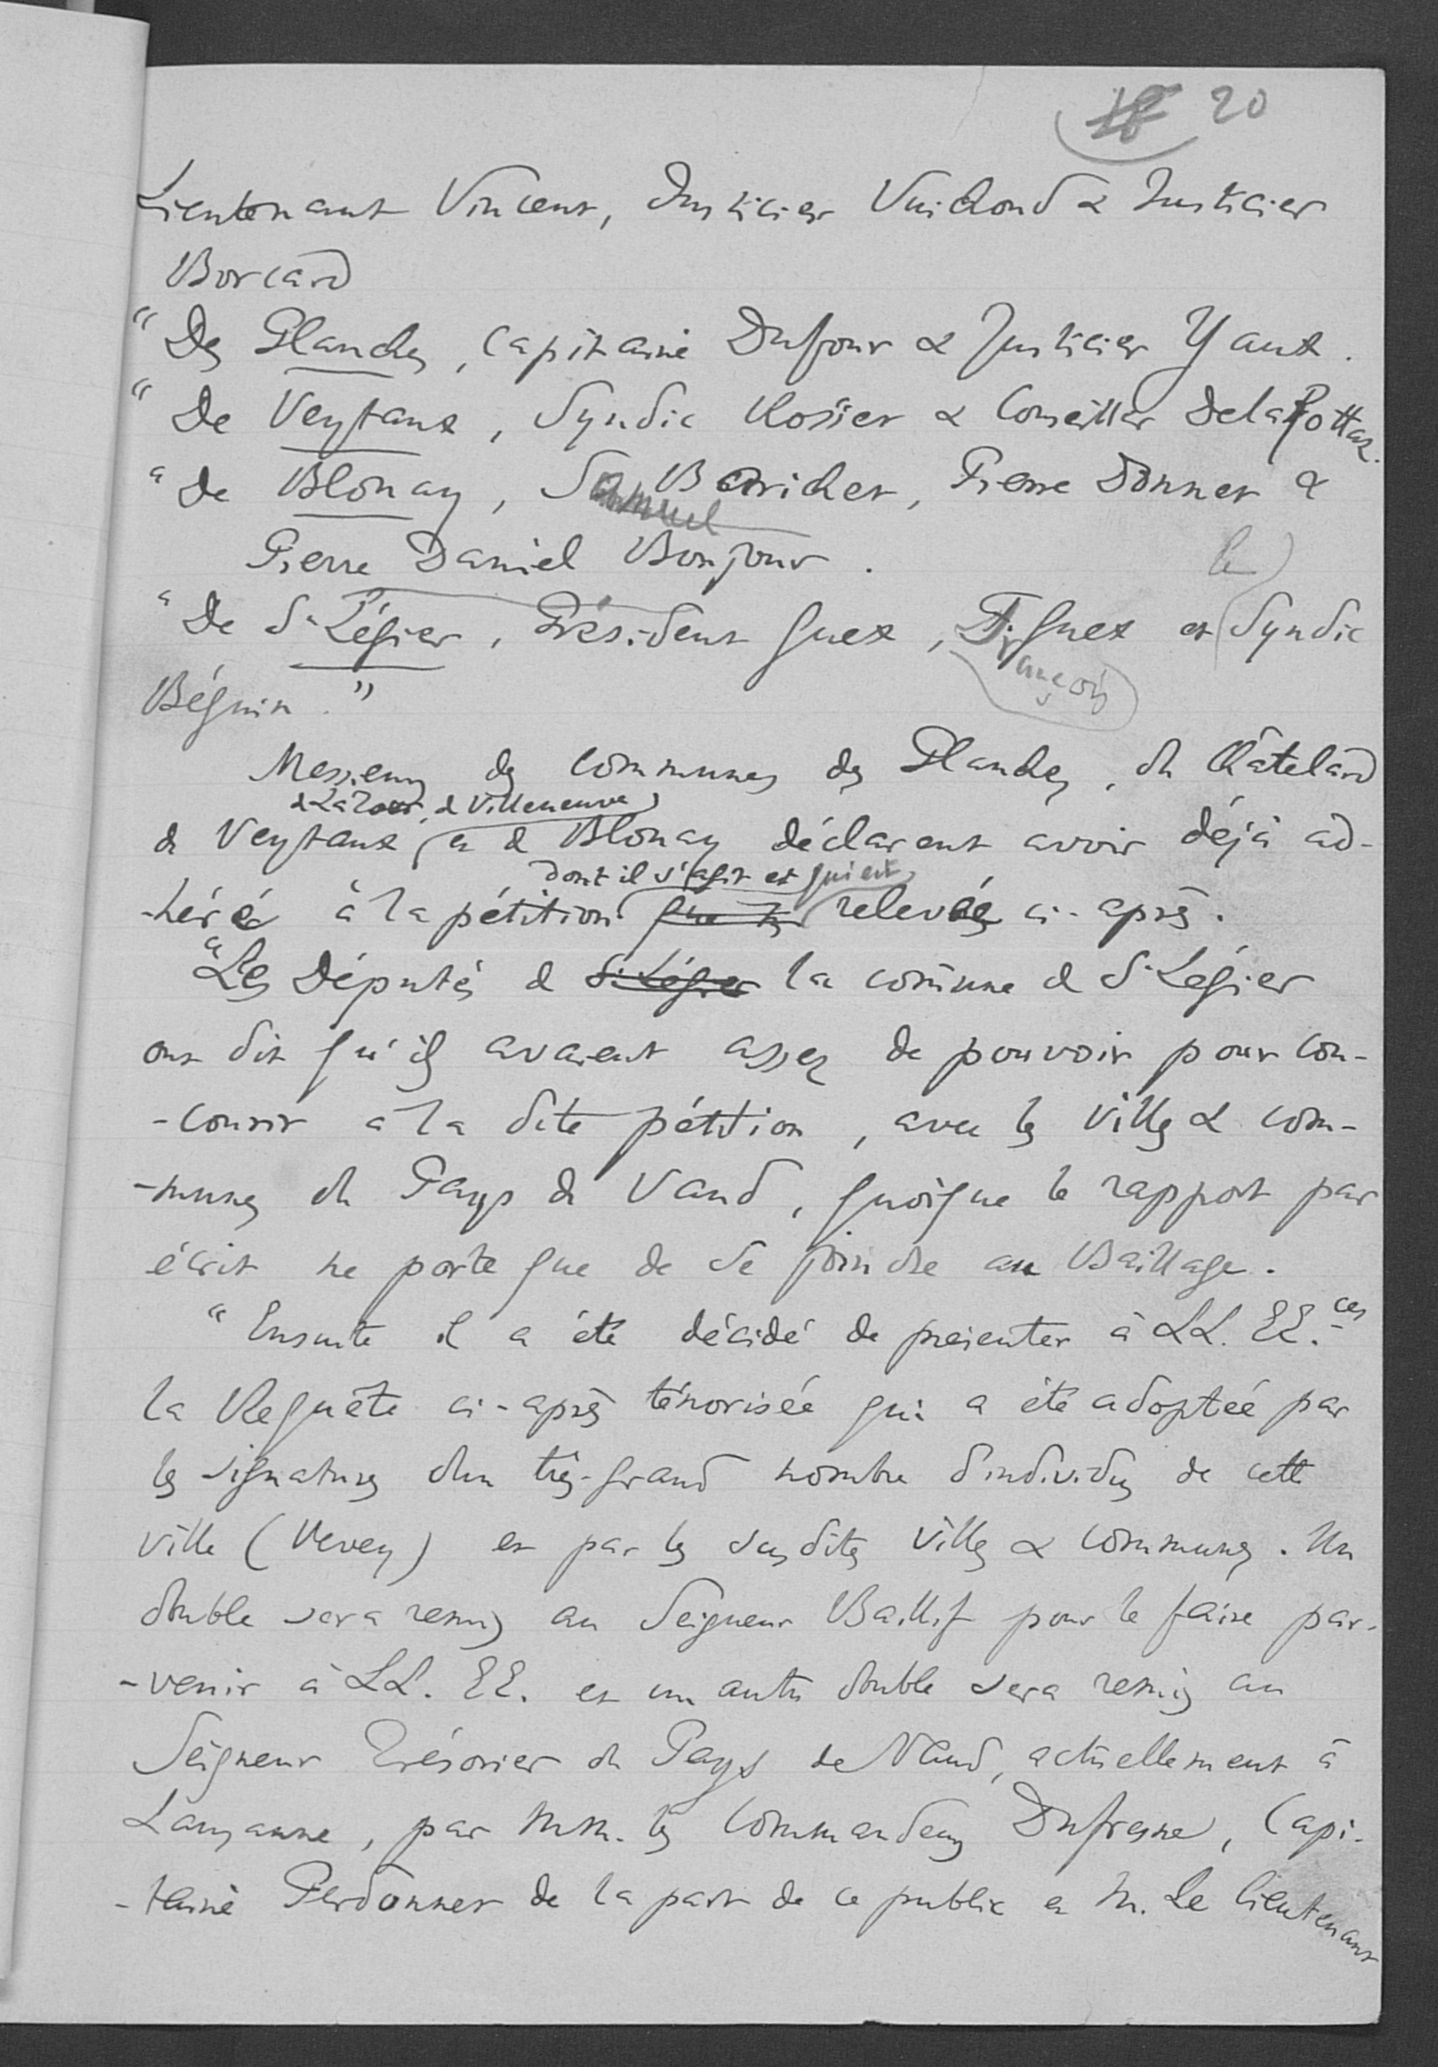 20
Lieutenant Vincent, Justicier Vuichoud & Justicier
Borcard
" Des Planches, Capitaine Dufour & Justicier Yaux.
" De Veytaux, Syndic Rossier & Conseiller Delarottaz.
" de Blonay, Samuel Boricher, Pierre Bonner &
Pierre Daniel Bonjour.
le
" De St Légier, Président Guex, François Guex et Syndic
Béguin."
Messieurs des communes des Planches, du Châtelard
de La Tour, de Villeneuve
de Veytaux et de Blonay déclarent avoir déjà ad-
dont il s'agit et qui est
-héré à la pétition relevée ci-après.
"Les Députés de St Légier la com̄une de St Légier
ont dit qu'ils avaient assez de pouvoir pour con-
-courir à la dite pétition, avec les villes & com-
-munes du Pays de Vaud, quoique le rapport par
écrit ne porte que de se joindre au Baillage.
" Ensuite il a été décidé de présenter à LL. EE.ces
la Requête ci-après ténorisée qui a été adoptée par
les signatures d'un très-grand nombre d'individus de cette
ville (Vevey) et par les susdites villes & communes. Un
double sera remis au Seigneur Baillif pour le faire par-
-venir à LL. EE. et un autre double sera remis au
Seigneur Trésorier du Pays de Vaud, actuellement à
Lausanne, par MM. les Commandeurs Dufresne, Capi-
-taine Perdonnet de la part de ce public et M. Le Lieutenant